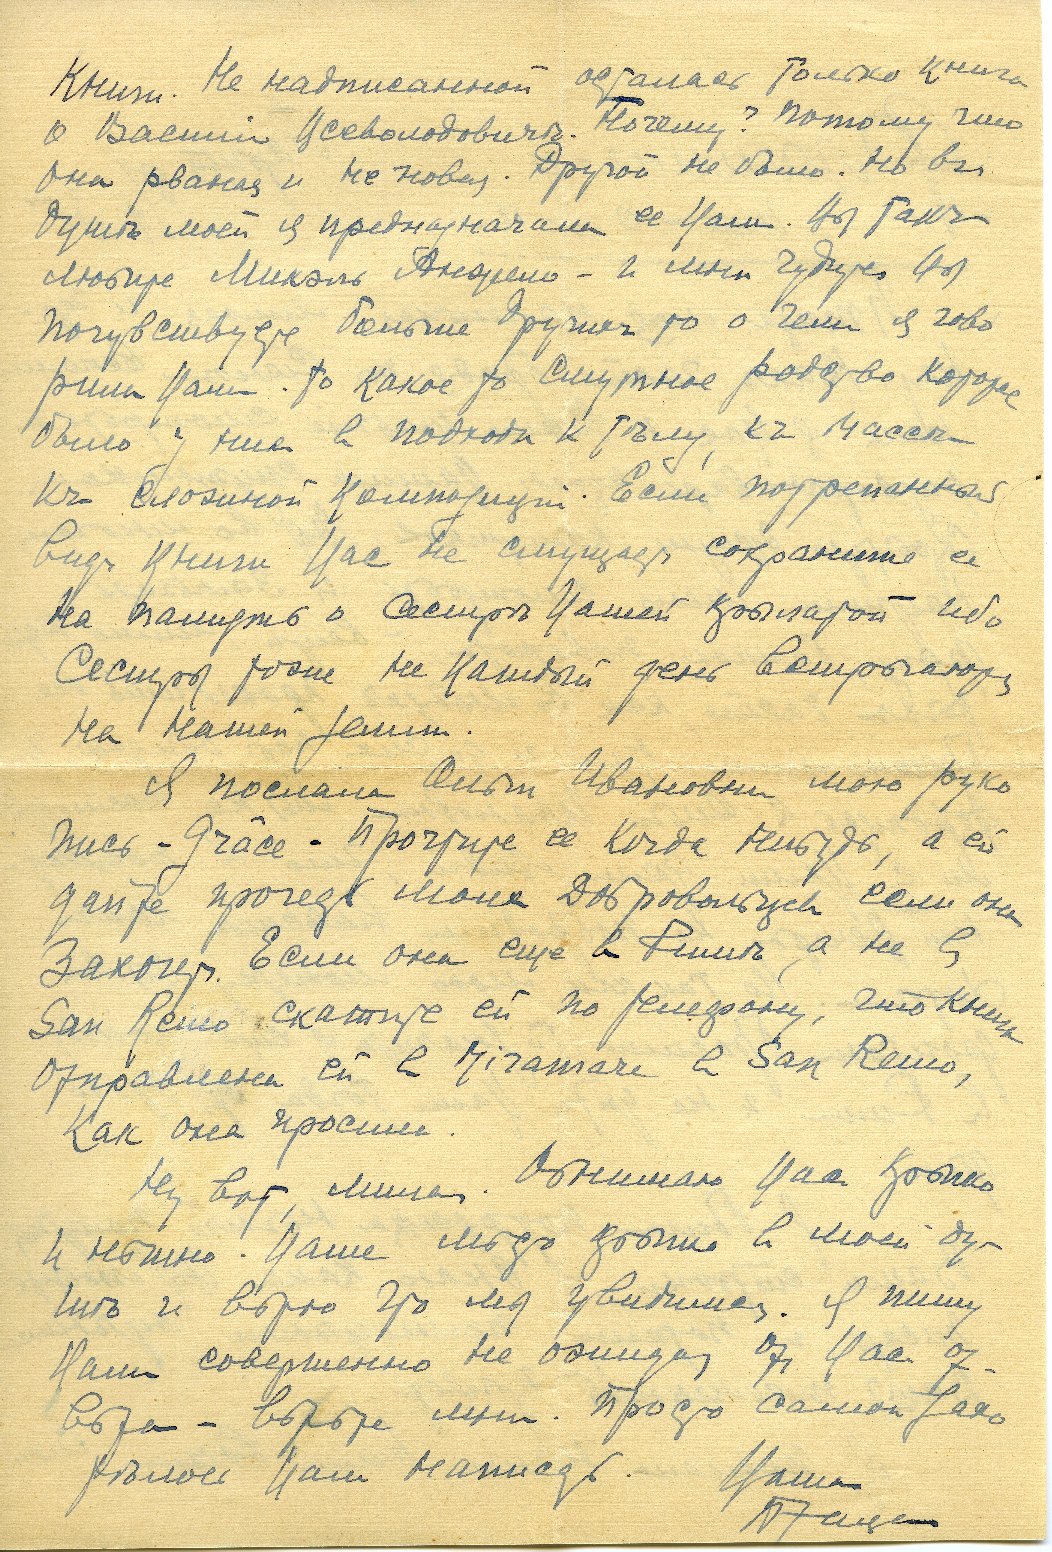 Книги. Не надписанной осталась только книга
о Василiи Всеволодовичѣ. Почему? Потому что
она рваная и не новая. Другой не было. Но въ
душѣ моей я предназначала ее Вам. Вы такъ
любите Микэль Анджело – и мнѣ чудится Вы
почувствуете больше других то о чем я гово
рила Вам. То какое то смутное родство которое
было у них в подходѣ к тѣлу, къ массѣ
къ сложной композицiи. Если потрепанный
видъ книги Вас не смущаетъ сохраните ее
на память о Сестрѣ Вашей крылатой ибо
Сестры тоже не каждый день встрѣчаются
на нашей землѣ.
Я послала Ольгѣ Ивановнѣ мою руко
пись – Grâce – Прочтите ее когда нибудь, а ей
дайте прочесть моих Добровольцев если она
захочетъ. Если она еще в Римѣ, а не в
San Remo скажите ей по телефону, что книга
отправлена ей в Miramare в San Remo,
как она просила.
Ну вот, милая. Обнимаю Вас крѣпко
и нѣжно. Ваше мѣсто крѣпко в моей ду-
шѣ и вѣрю что мы увидимся. Я пишу
Вам совершенно не ожидая от Вас от-
вѣта – вѣрьте мнѣ. Просто самой захо
тѣлось Вам написать. Ваша